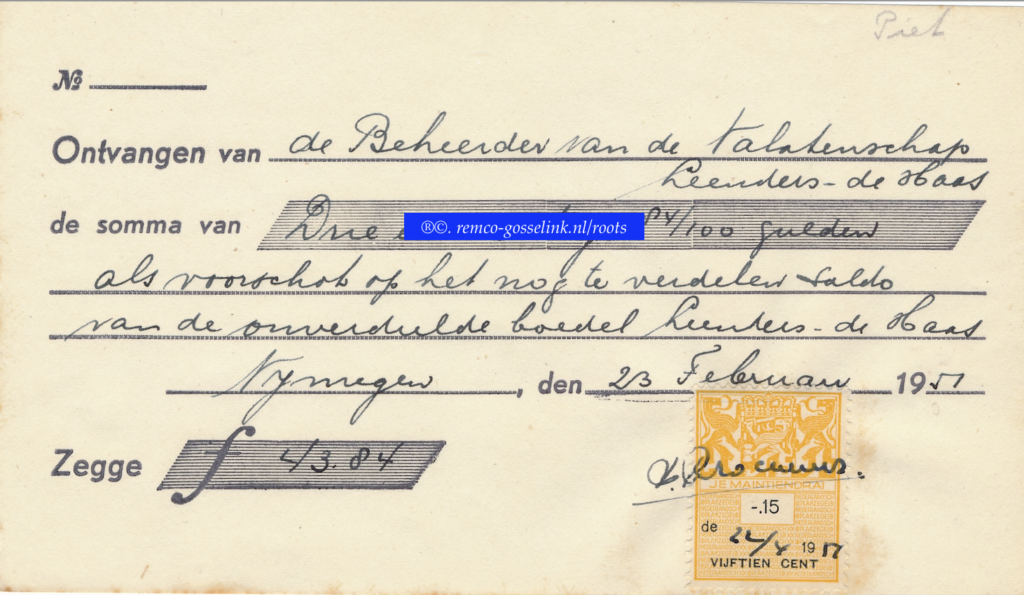 Piet
№
Ontvangen van de Beheerder van de nalatenschap
Leenders - de Haas
de somma van Drie 84/100 gulden
®©. remco-gosselink.nl/roots
als voorschot op het nog te verdelen saldo
van de onverdeelde boedel Leenders - de Haas
Nymegen, den 23 Februari 1951
Zegge f 43.84
JE MAINTIENDRAI
-.15
de 24/4 1951
VIJFTIEN CENT